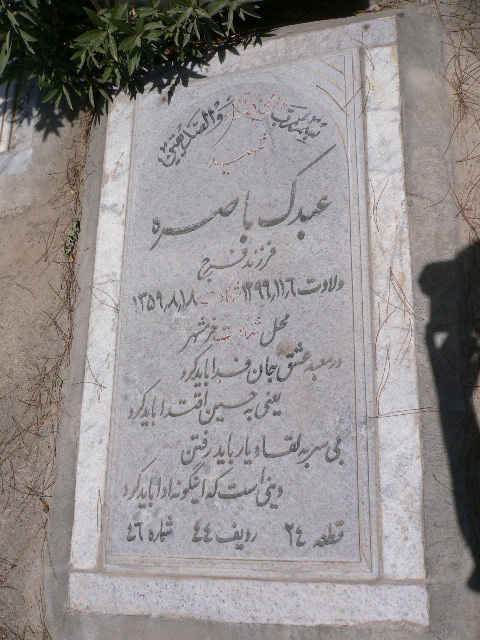 بسم رب الشهداء والصدیقین
شهید
عبدک باصره
فرزند فرج
ولادت ۱۲۹۹٫۱۱٫۶ شهادت ۱۳۵۹٫۸٫۱۸
محل شهادت خرمشهر
در معبد عشق جان فدا باید کرد
یعنی به حسین اقتدا باید کرد
بی سر به لقاء یار باید رفتن
دینی است که اینگونه ادا باید کرد
قطعه ۲۴ ردیف ۴۴ شماره ۴۶